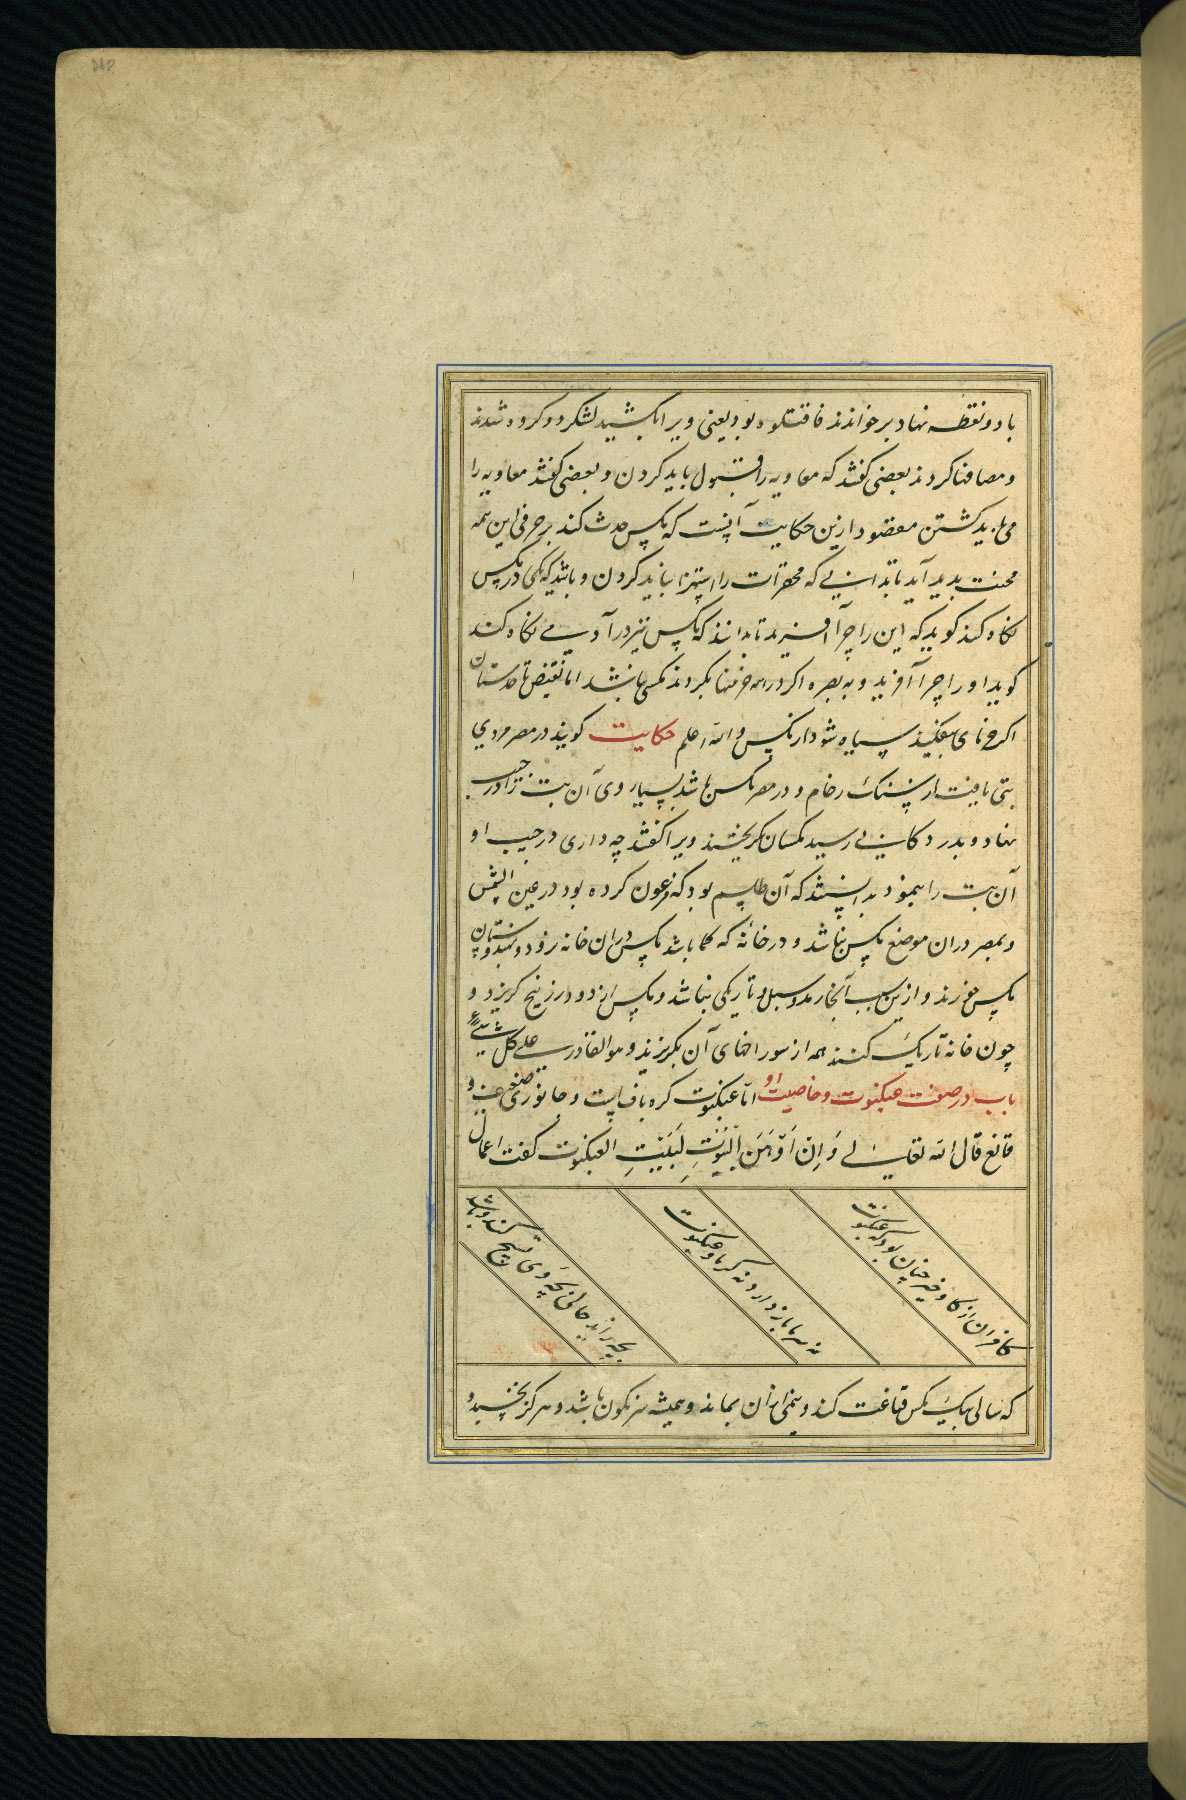 با دو نقطه نهاد برخواندند فاقتلوه بود یعنی ویرا بکشید لشکر دو کروه شدند
و مصافها کردند بعضی کفتند که معاویه را قبول باید کردن و بعضی کفتند معاویه را
می باید کشتن مقصود ازین حکایت آنست که مکس حدث کند بر حرفی این همه
محنت بدید آید تا بدانی که محقرات را استهزا نباید کردن و باشد که یکی در مکس
نکاه کند کوید که این را چرا آفرید تا بدانند که مکس نیز در آدمی نکاه کند
کوید او را چرا آفرید و به بصره اکر در همه خرمنها بکردند مکس نباشد اما
اکر خرمای بیفکنند سیاه شود از مکس والله اعلم حکایت کویند در مصر مردی
بتی یافت از سنک رخام و در مصر مکس باشد بسیار وی آن بت را در جیب
نهاد و بدر دکانی رسید مکسان بکریختند ویرا کفتند چه داری در جیب او
آن بت را بنمود بدانستند که آن طلسم بود که فرعون کرده بود در عین الشمس
و بمصر در آن موضع مکس نباشد و در خانه که باشد مکس در آن خانه نرود و
مکس خورند و ازین سبب آنجا و تاریکی نباشد و مکس از دود زرنیخ کریزد و
چون خانه تاریک کنند همه از سوراخهای آن بکریزند و هو القادر علی کل شیء
باب در صفت عنکبوت و خاصیت او اما عنکبوت کره باف است و جانوری ضعیف و
قانع قال الله تعالی وَاِنَّ اَوْهَنَ الْبُیُوتِ لَبَیْتِ العنکبوت کفت اعمال
کافران از کاو خیر چنان بود که عنکبوت
نه سرما باز دارد و نه کرما و عنکبوت
بچه زاید حالی بچه وی نسج کند و باشد
که سالی بیک مکس قناعت کند و نیمی از آن بماند و همیشه سرنکون باشد و هرکز نخسبد و